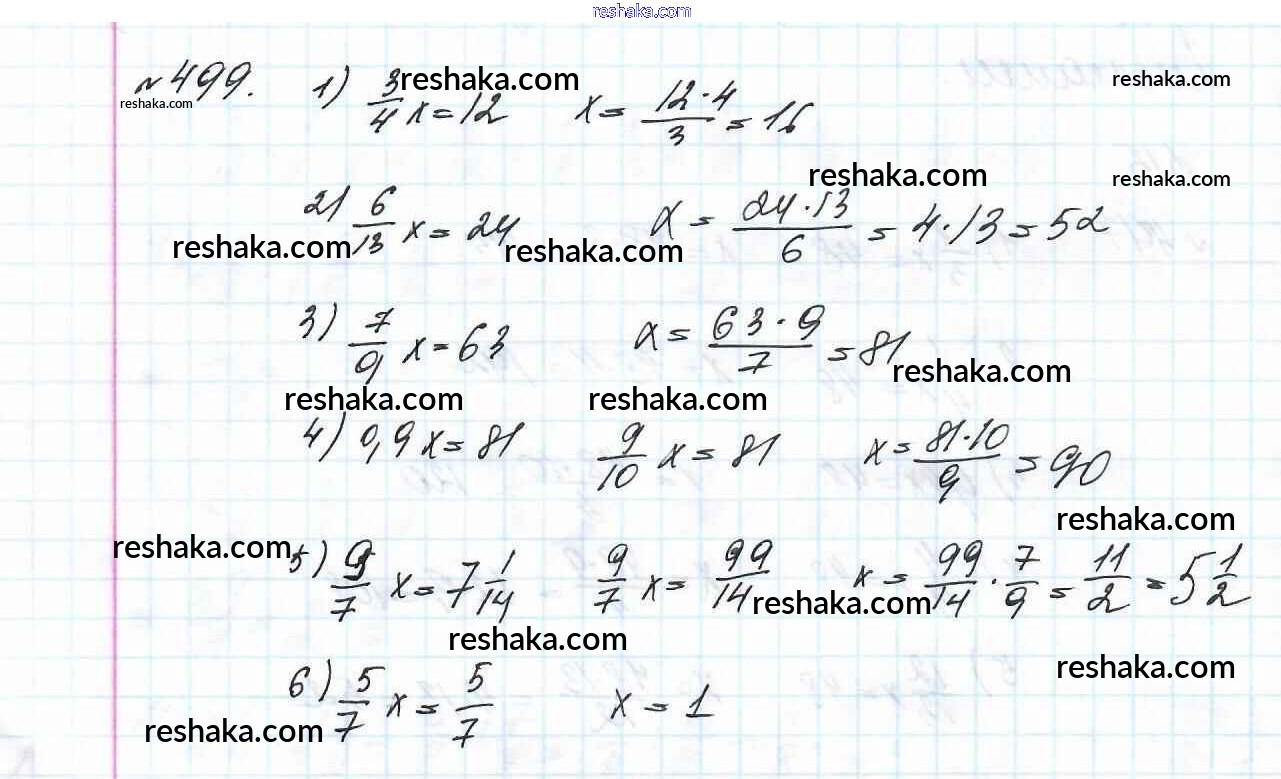 reshaka.com
№499. 1) 3/4 x = 12 x = 12·4/3 = 16
reshaka.com reshaka.com reshaka.com
2) 6/13 x = 24 x = 24·13/6 = 4·13 = 52
reshaka.com reshaka.com reshaka.com reshaka.com
3) 7/9 x = 63 x = 63·9/7 = 81
reshaka.com reshaka.com reshaka.com
4) 0,9 x = 81 9/10 x = 81 x = 81·10/9 = 90
reshaka.com
5) 9/7 x = 7 1/14 9/7 x = 99/14 x = 99/14 · 7/9 = 11/2 = 5 1/2
reshaka.com reshaka.com reshaka.com
6) 5/7 x = 5/7 x = 1
reshaka.com reshaka.com